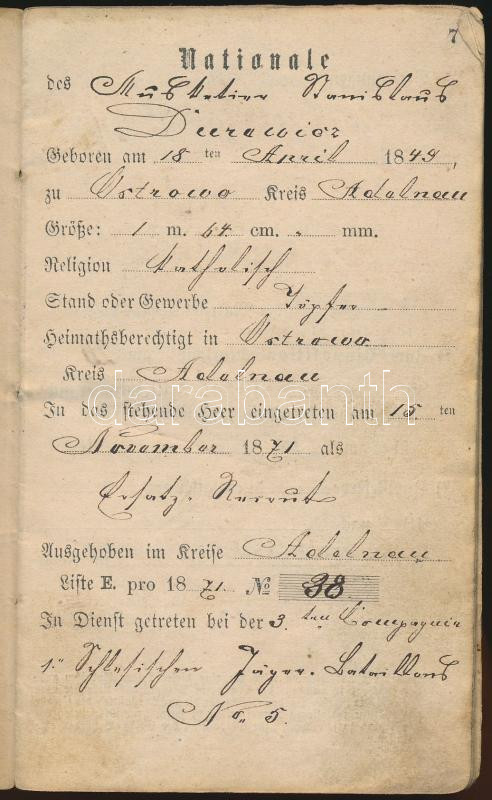 7
Nationale
des Musketier Stanislaus
Durawicz
Geboren am 18ten April 1849,
zu Ostrowo Kreis Adelnau
Größe: 1 m. 64. cm. " mm.
Religion katholisch
Stand oder Gewerbe Töpfer
Heimathsberechtigt in Ostrowo
Kreis Adelnau
darabanth
In das stehende Heer eingetreten am 15ten
November 1871 als
Ersatz-Recrut
Ausgehoben im Kreise Adelnau
Liste E. pro 1871. № 38,
In Dienst getreten bei der 3.ten Compagnie
1.n Schlesischen Jäger-Bataillons
No. 5.